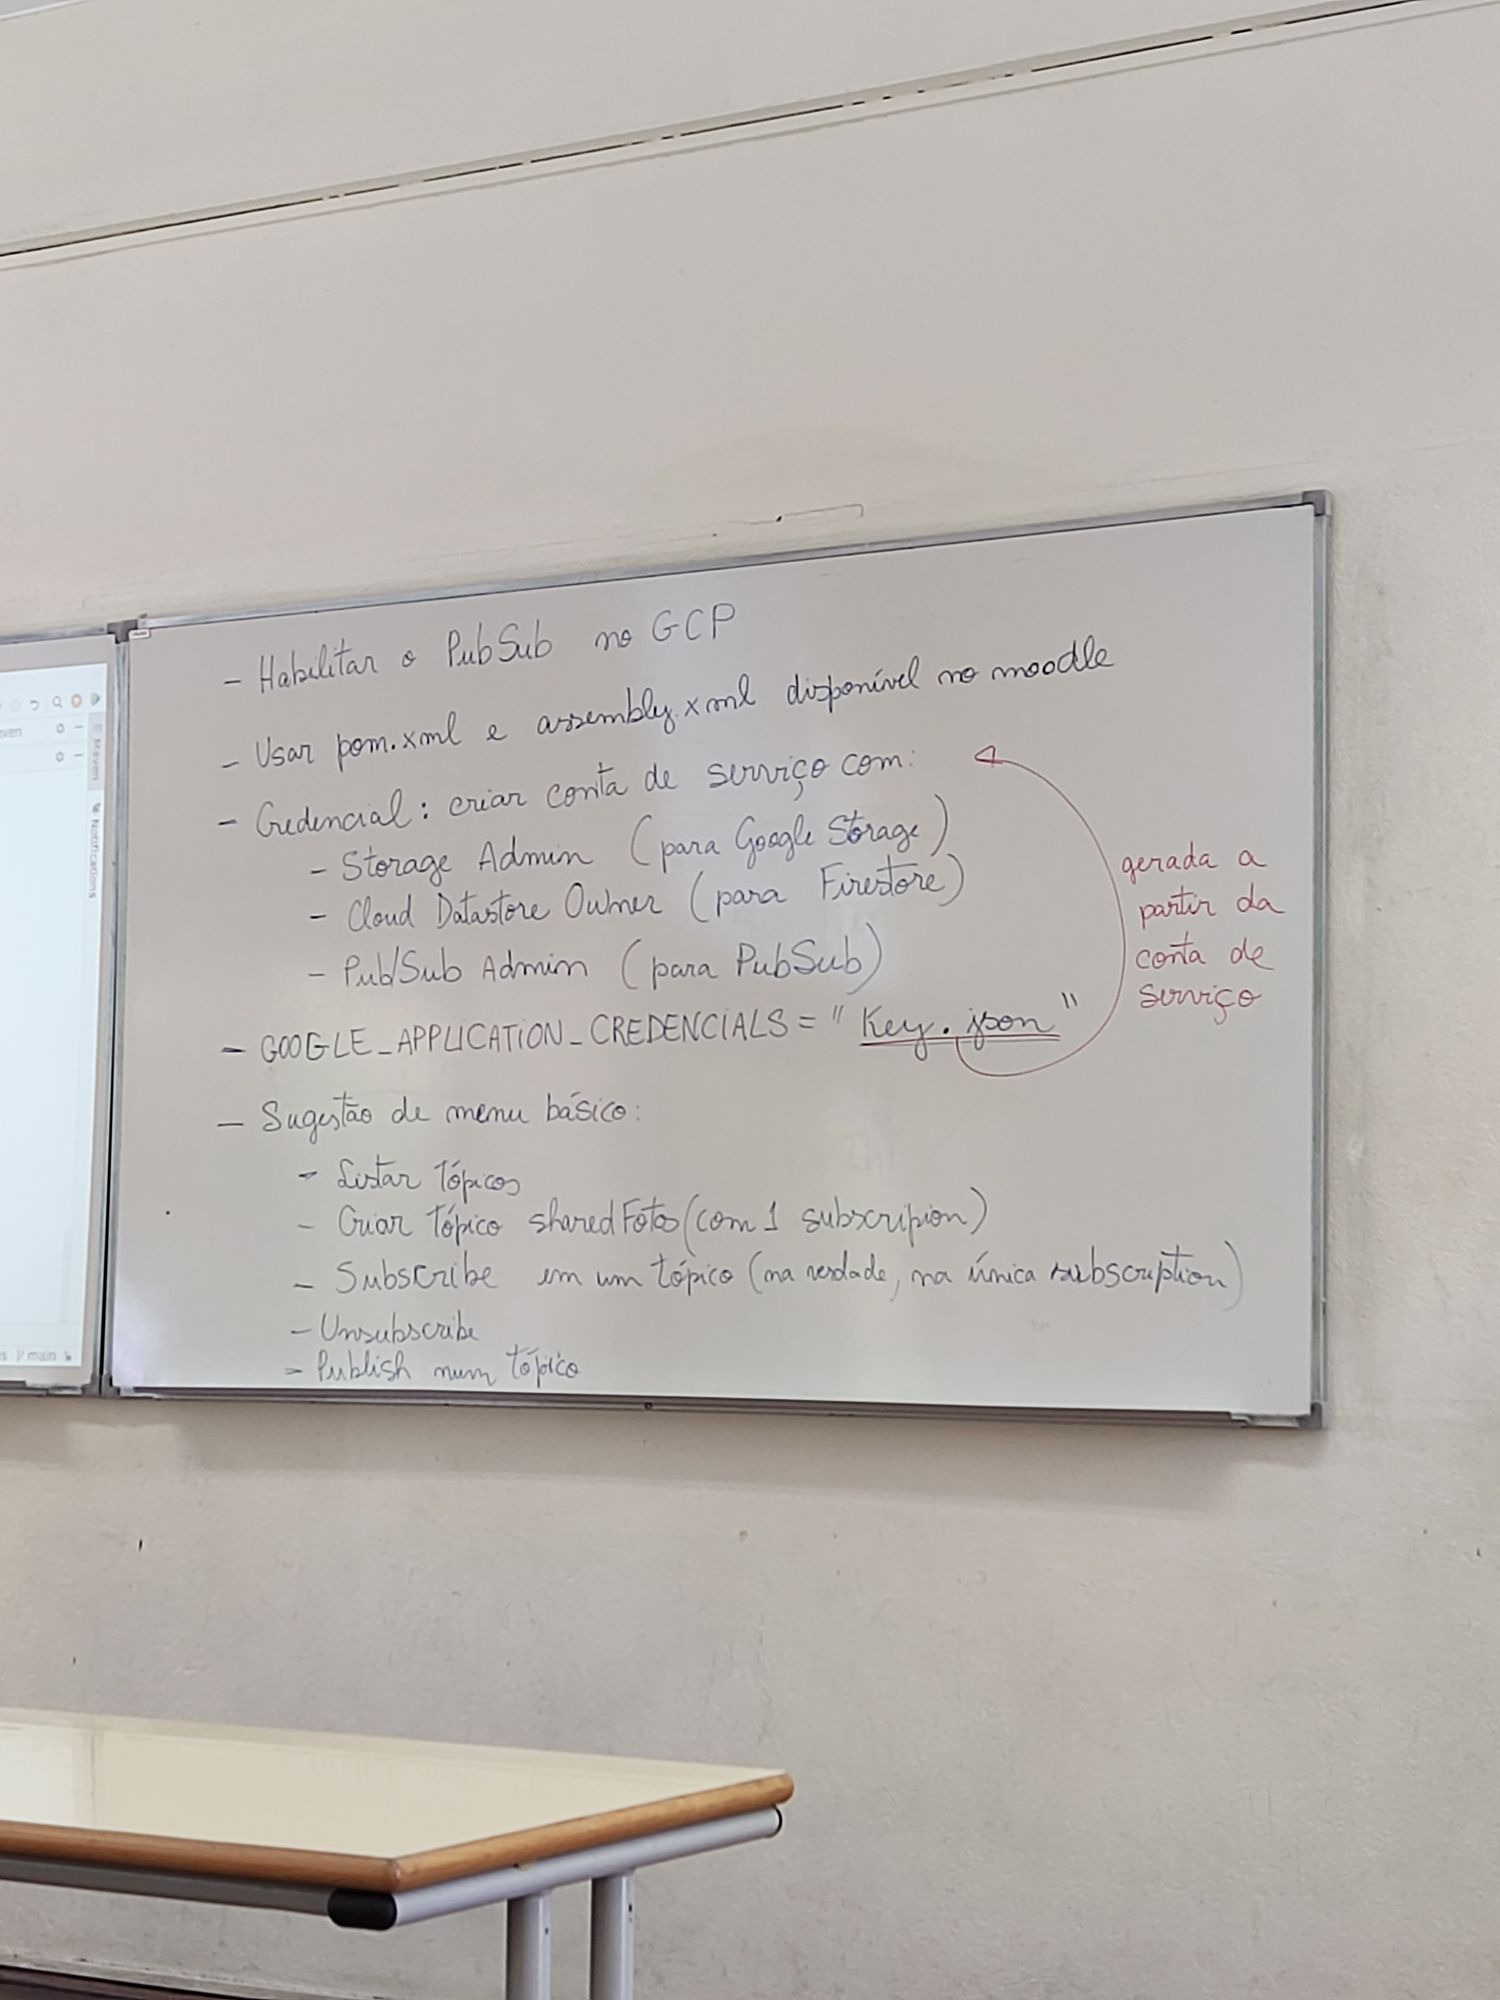 - Habilitar o PubSub no GCP
- Usar pom.xml e assembly.xml disponível no moodle
- Credencial: criar conta de serviço com:
- Storage Admin (para Google Storage)
- Cloud Datastore Owner (para Firestore)
- Pub/Sub Admin (para PubSub)
- GOOGLE_APPLICATION_CREDENCIALS = "Key.json"
gerada a
partir da
conta de
serviço
- Sugestão de menu básico:
- Listar tópicos
- Criar tópico sharedFotos (com 1 subscripion)
- Subscribe em um tópico (na verdade, na única subscription)
- Unsubscribe
- Publish num tópico
Maven
Notifications
main